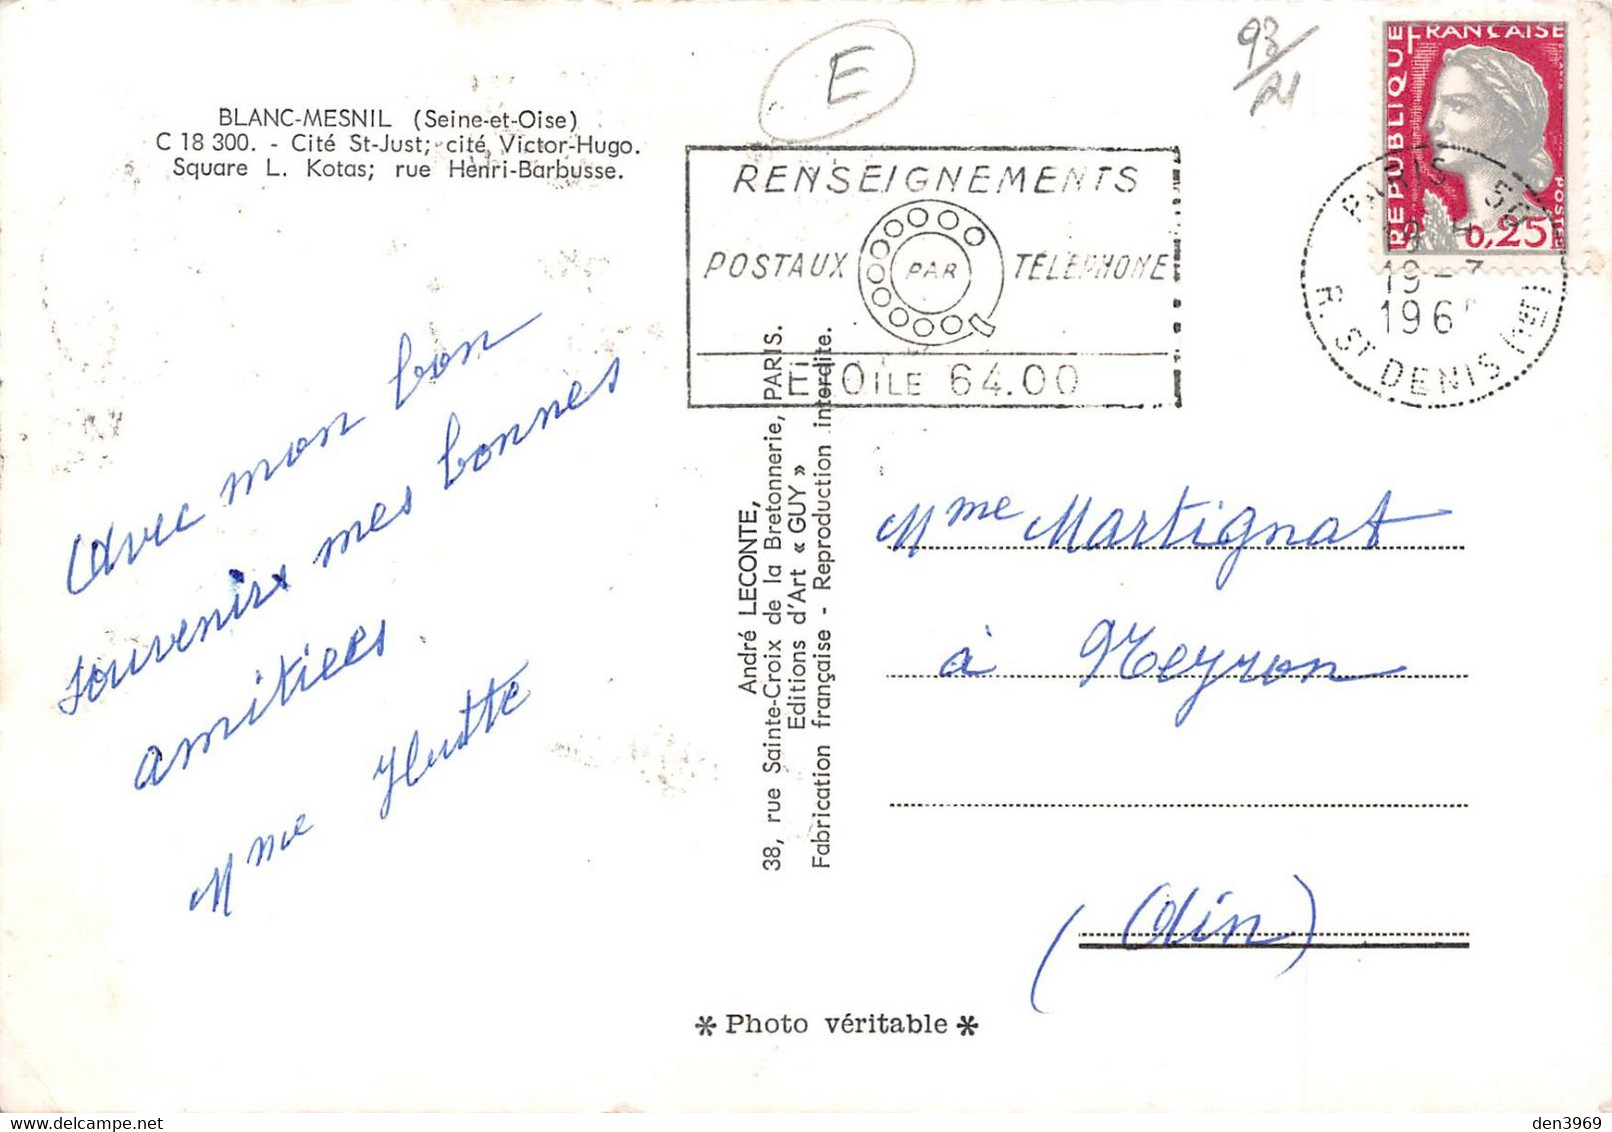 BLANC-MESNIL (Seine-et-Oise)
C 18 300. - Cité St-Just; cité Victor-Hugo.
Square L. Kotas; rue Henri-Barbusse.
E
93/21
RENSEIGNEMENTS
POSTAUX PAR TÉLÉPHONE
ETOILE 64.00
RÉPUBLIQUE FRANÇAISE
POSTES
0,25F
PARIS 58
R. St DENIS
19 - 7
196
Avec mon bon
souvenirs mes bonnes
amitiees.
Mme Hutte
André LECONTE,
38, rue Sainte-Croix de la Bretonnerie, PARIS.
Editions d'Art « GUY »
Fabrication française - Reproduction interdite.
Mme Martignat
à Neyron
(Ain)
* Photo véritable *
den3969